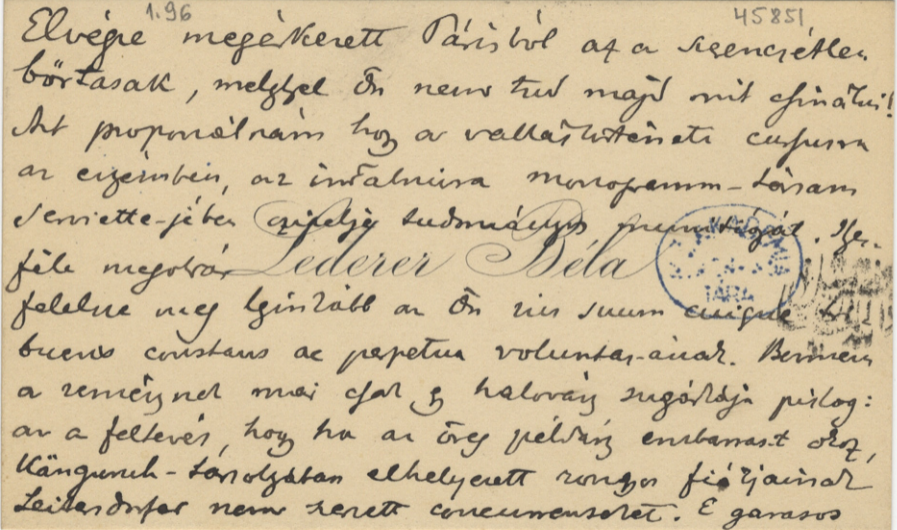 1.96 45851
Elvégre megérkezett Párisból az a szerencsétlen
bőrtasak, mellyel Ön nem tud majd mit csinálni!
Azt proponálnám hogy a vallástörténeti cursusra
az egyetemben, az
monogramm-társam
serviette-jében cipelje tudományos munícióját. Ily-
féle megoldás
Lederer Béla
TÁRA
felelne meg leginkább az Ön ius suum cuique
constans ac perpetua voluntas-ának. Bennem
a reménynek már csak egy halovány sugárkája pislog:
az a feltevés, hogy ha az öreg példány embarras-t okoz,
Känguruh-tarsolyában elhelyezett rongyos fiókjainak
Leitersdorfer nem szerzett concurrenseket. E garasos